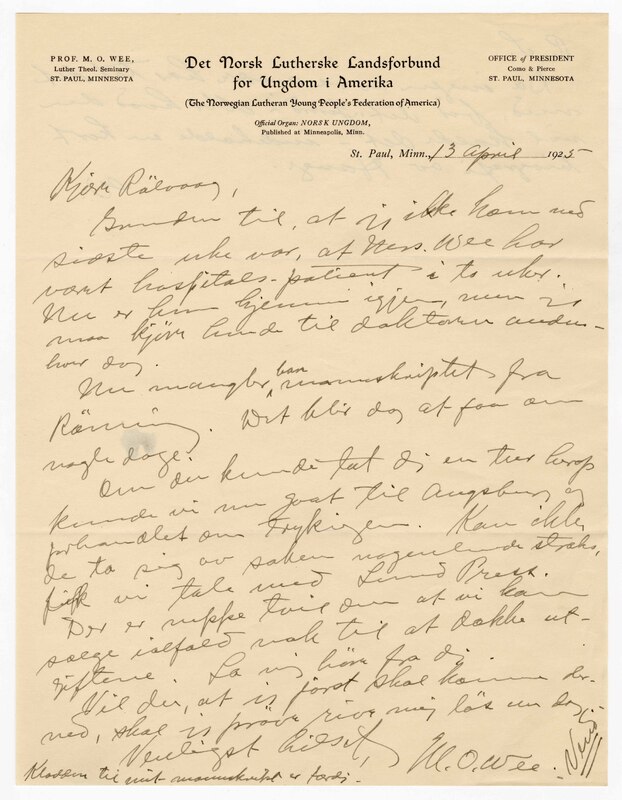 PROF. M. O. WEE,
Luther Theol. Seminary
ST. PAUL, MINNESOTA
Det Norsk Lutherske Landsforbund
for Ungdom i Amerika
(The Norwegian Lutheran Young People's Federation of America)
Official Organ: NORSK UNGDOM,
Published at Minneapolis, Minn.
OFFICE of PRESIDENT
Como & Pierce
ST. PAUL, MINNESOTA
St. Paul, Minn., 13 April 1925
Kjære Rölvaag,
Grunden til, at jeg ikke kom ned
sidste uke var, at Mrs. Wee har
været hospitals-patient i to uker.
Nu er hun hjemme igjen, men jeg
maa kjöre hende til doktoren anden-
hver dag.
Nu mangler bare manuskriptet fra
Rönning. Det blir dog at faa om
nogle dage.
Om du kunde tat dig en tur herop
kunde vi nu gaat til Augsburg og
forhandlet om trykningen. Kan ikke
de ta sig av saken nogenlunde straks,
fik vi tale med Lund Press.
Der er neppe tvil om at vi kan
sælge ialfald nok til at dække ut-
giftene. La mig höre fra dig.
Vil du, at jeg först skal komme der-
ned, skal jeg pröve rive mig lös en dag.
Venligst hilset,
M. O. Wee.
Kladden til mit manuskript er færdig.